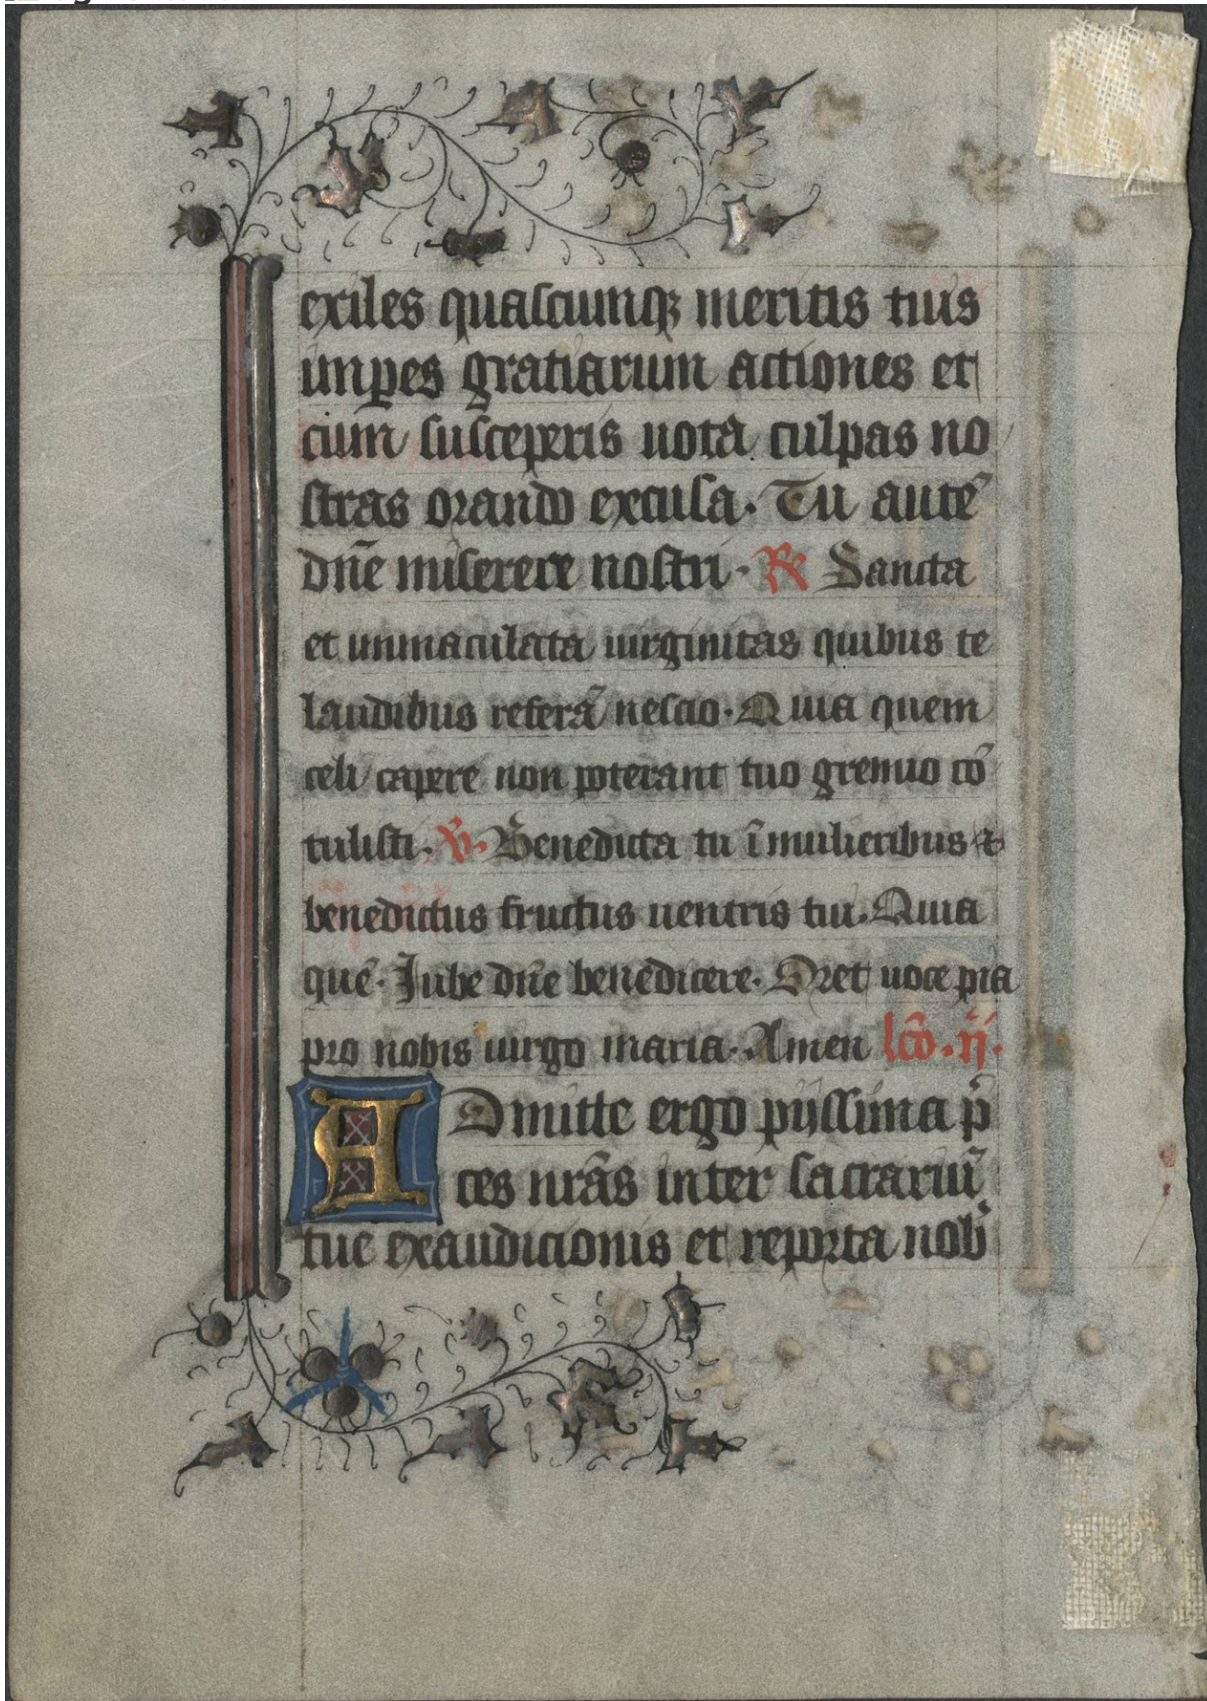 exiles quascunqꝫ meritis tuis
impꝑes gratiarum actiones et
cum susceperis uota culpas no
stras orando excusa. Tu autē
dn̄e miserere nostri. ℟ Sancta
et inmaculata uirginitas quibus te
laudibus referā nescio. Quia quem
celi capere non poterant tuo gremio cō
tulisti. ℣. Benedicta tu ī mulieribus ⁊
benedictus fructus uentris tui. Quia
quē. Iube dn̄e benedicere. Oret uoce pia
pro nobis uirgo maria. Amen lc̄o. ij.
ADmitte ergo pijssima p̄
ces nr̄as inter sacrariū
tue exaudicionis et reporta nob̄